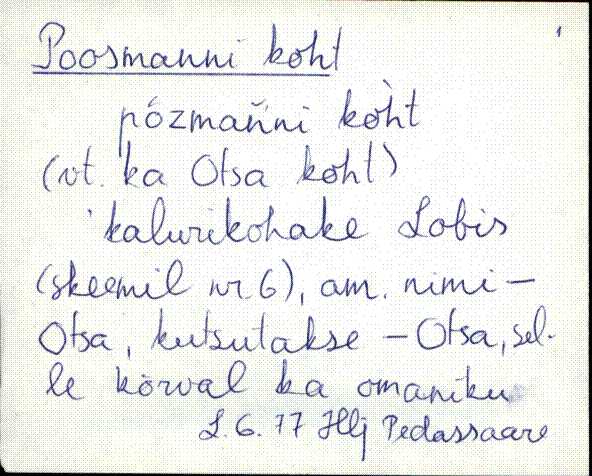 Poosmanni koht
pózmaňni kòht
(vt. ka Otsa koht)
kalurikohake Lobis
(skeemil nr 6), am. nimi –
Otsa, kutsutakse – Otsa, sel-
le kõrval ka omaniku
L. 6. 77 Hlj Pedassaare